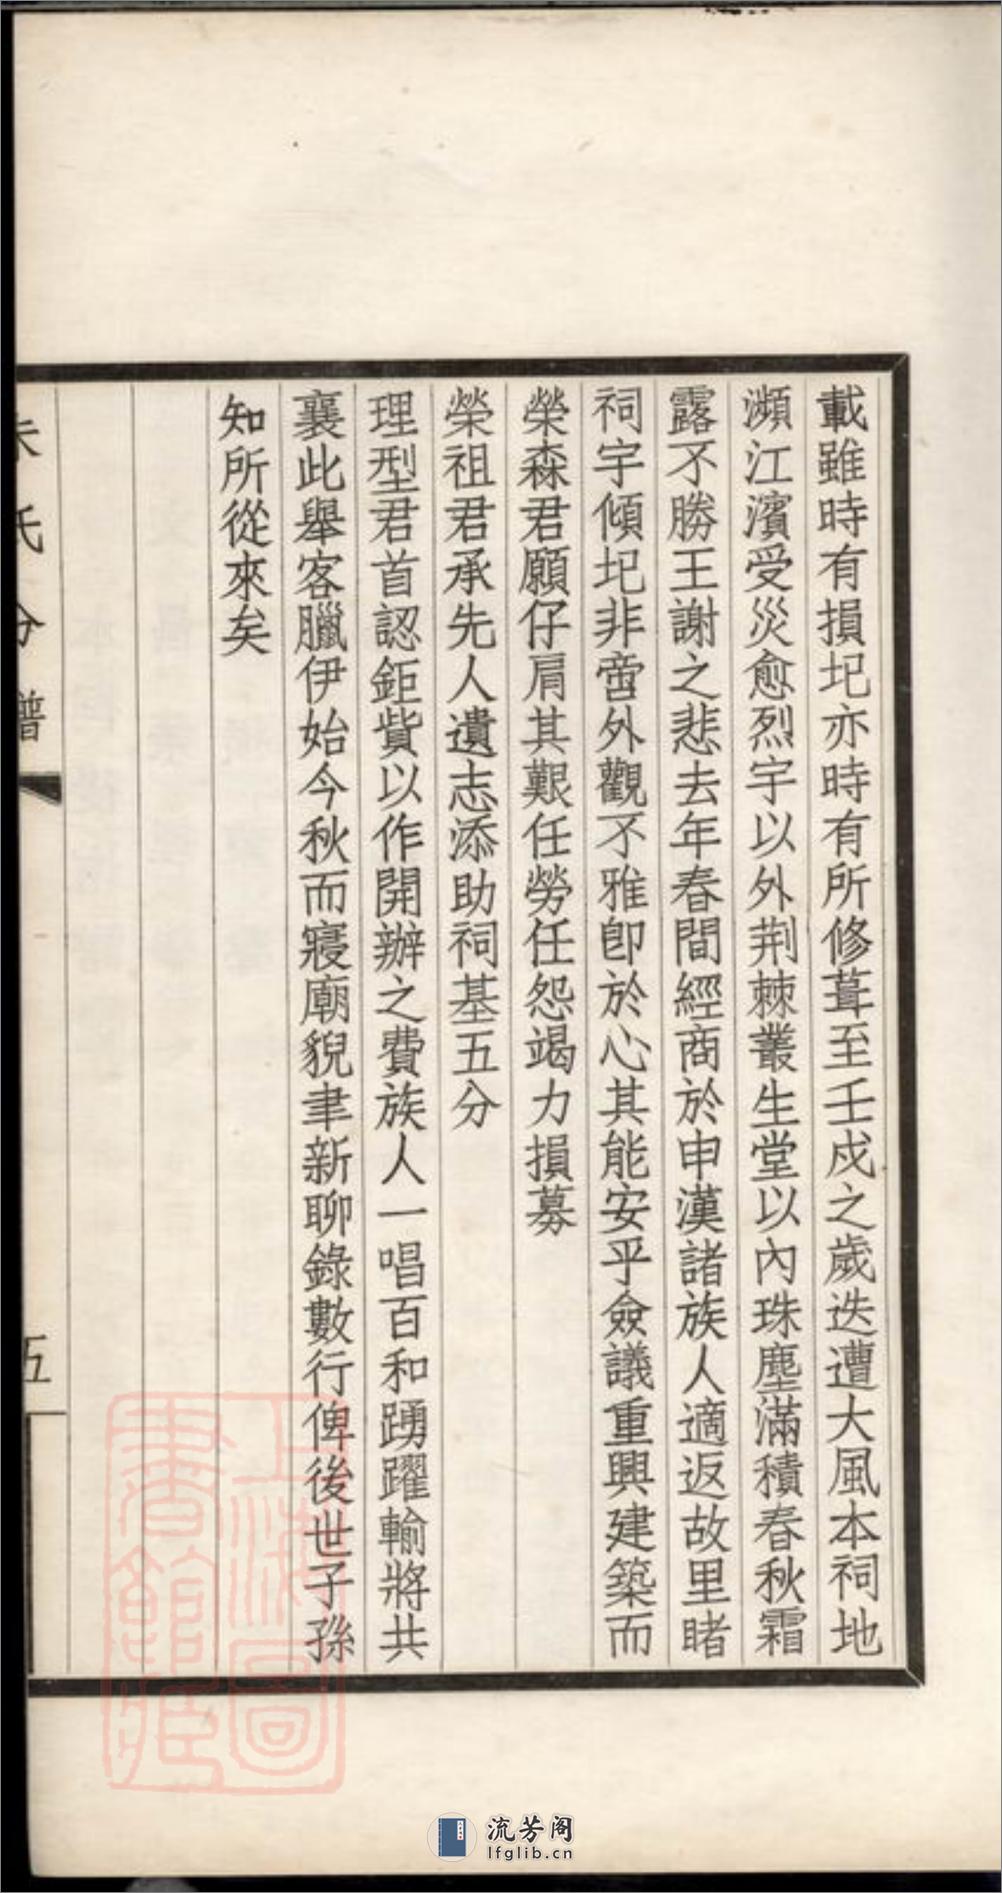 載雖時有損圮亦時有所修葺至壬戍之歲迭遭大風本祠地
瀕江濱受災愈烈宇以外荆棘叢生堂以內珠塵滿積春秋霜
露不勝王謝之悲去年春間經商於申漢諸族人適返故里睹
祠宇傾圮非啻外觀不雅卽於心其能安乎僉議重興建築而
榮森君願仔肩其艱任勞任怨竭力損募
榮祖君承先人遺志添助祠基五分
理型君首認鉅貲以作開辦之費族人一唱百和踴躍輸將共
襄此舉客臘伊始今秋而寢廟貌聿新聊錄數行俾後世子孫
知所從來矣
朱氏分譜
五
上海圖書館藏
流芳阁
lfglib.cn